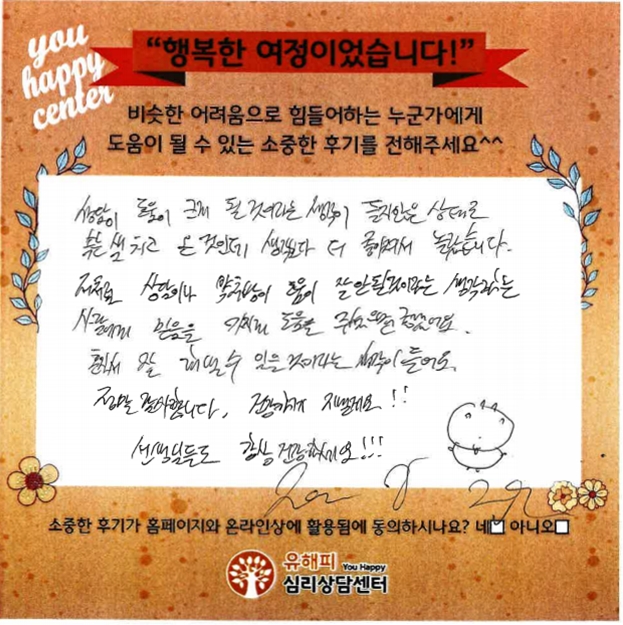 you
happy
center
“행복한 여정이었습니다!”
비슷한 어려움으로 힘들어하는 누군가에게
도움이 될 수 있는 소중한 후기를 전해주세요^^
상담이 도움이 크게 될 것이라는 생각이 들지않은 상태로
속는 셈 치고 온 것인데 생각보다 더 좋아져서 놀랐습니다.
저처럼 상담이나 약 처방이 도움이 잘 안 될것이라는 생각하는
사람에게 믿음을 도움을
잘 수 있을 것이라는 생각이 들어요.
정말 감사합니다, 건강하게 지낼게요!!
선생님들도 항상 건강하세요!!!
소중한 후기가 홈페이지와 온라인상에 활용됨에 동의하시나요? 네 아니오
유해피 You Happy
심리상담센터